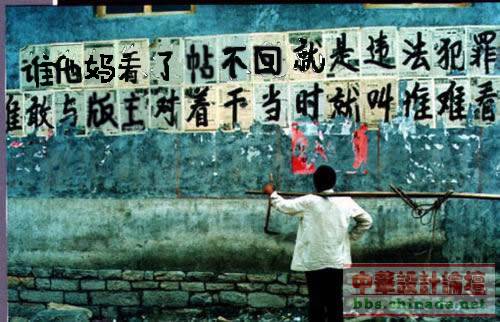 谁他妈看了帖不回就是违法犯罪
谁敢与版主对着干当时就叫谁难看
中華設計論壇
bbs.chinada.net